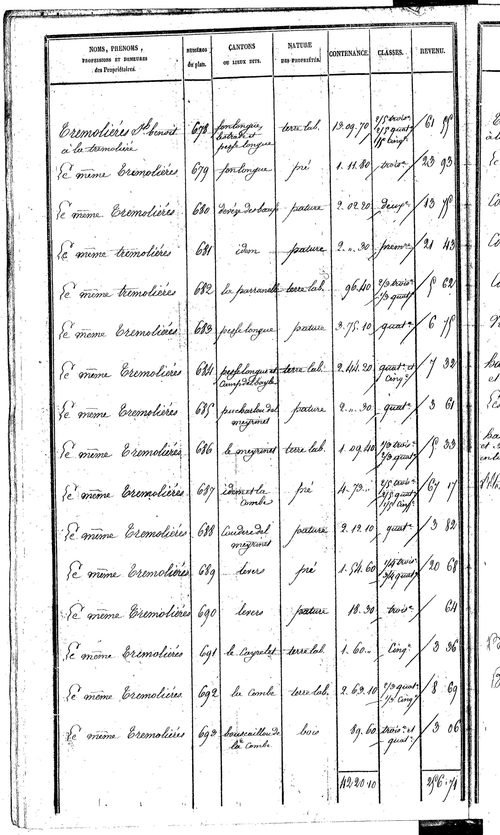 NOMS, PRENOMS, PROFESSIONS ET DEMEURES des Propriétaires. NUMÉROS du plan. CANTONS OU LIEUX DITS. NATURE DES PROPRIÉTÉS. CONTENANCE. CLASSES. REVENU.
Tremoliérés benoit 678 fonlongue, terre lab. 13.09.70 2/5 trois 2/5 quat 1/5 cinq 61
à la tremoliere pesse longue
Le même Tremoliérés 679 fonlongue pré 1.11.80 trois 23 93
Le même Tremoliérés 680 pature 2.02.20 deux 13
Le même tremoliérés 681 idem pature 2.„.30 prem 21 43
Le même tremoliérés 682 la parranelle terre lab. 96.40 quat 5 62
Le même Tremoliérés 683 pesse longue pature 3.75.10 quat 6 75
Le même Tremoliérés 684 pesse longue et terre lab. 2.44.20 quat et cinq 7 32
Le même Tremoliérés 685 meyrinet pature 2.„.30 quat 3 61
Le même Tremoliérés 686 le meyrinet terre lab. 1.09.40 1/3 trois 2/3 quat 5 33
Le même Tremoliérés 687 idem et la combe pré 4.73.„ 2/5 trois 2/5 quat 1/5 cinq 67 17
Le même Tremoliérés 688 Couderc del meyrinet pature 2.12.10 quat 3 82
Le même Tremoliérés 689 levers pré 1.54.60 1/4 trois 3/4 quat 20 68
Le même Tremoliérés 690 levers pature 18.30 trois 64
Le même Tremoliérés 691 le Cayrelet terre lab. 1.60.„ Cinq 3 36
Le même Tremoliérés 692 la combe terre lab. 2.63.10 2/3 quat 1/3 cinq 8 69
Le même Tremoliérés 693 bouscaillou de la combe bois 89.60 trois et quat 3 06
42.20.10 256.71